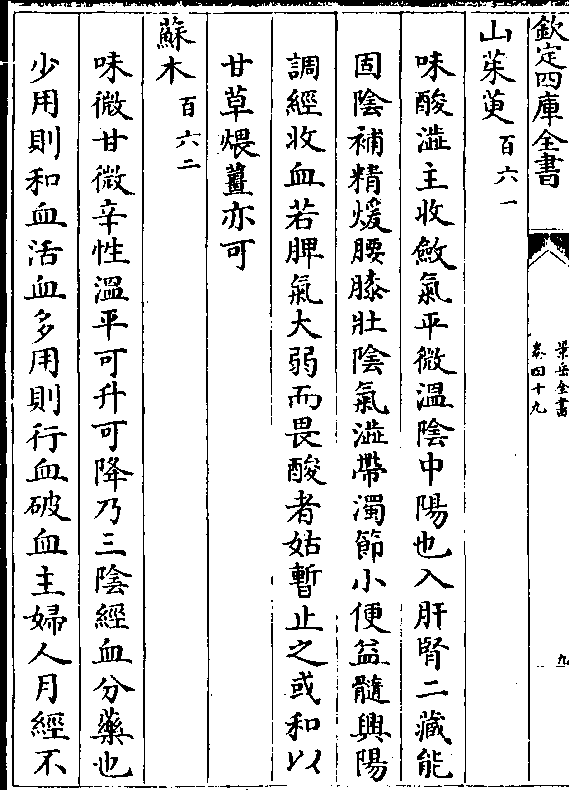 欽定四庫全書
景岳全書
卷四十九
九
山茱萸百六一
味酸澁主收斂氣平微溫陰中陽也入肝腎二藏能
固陰補精煖腰膝壯陰氣澁帶濁節小便益髓興陽
調經收血若脾氣大弱而畏酸者姑暫止之或和以
甘草煨薑亦可
蘇木百六二
味微甘微辛性溫平可升可降乃三陰經血分藥也
少用則和血活血多用則行血破血主婦人月經不